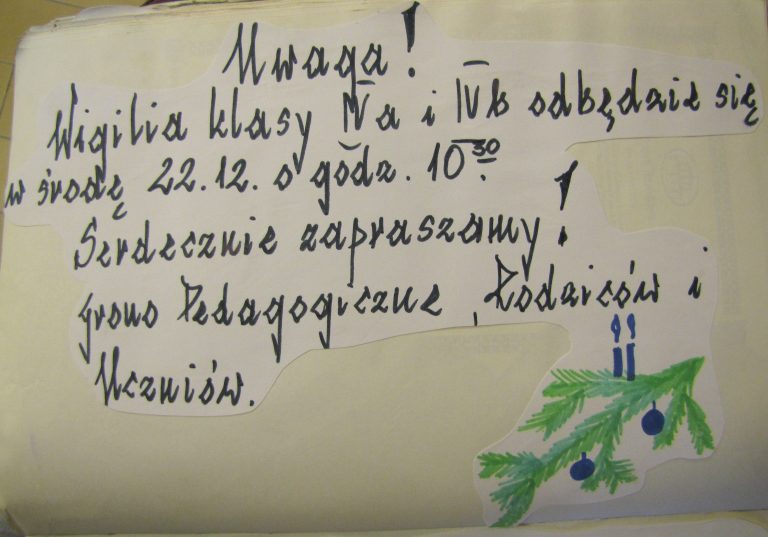 Uwaga!
Wigilia klasy IVa i IVb odbędzie się
w środę 22.12. o godz. 10³⁰.
Serdecznie zapraszamy!
grono Pedagogiczne, Rodziców i
Uczniów.